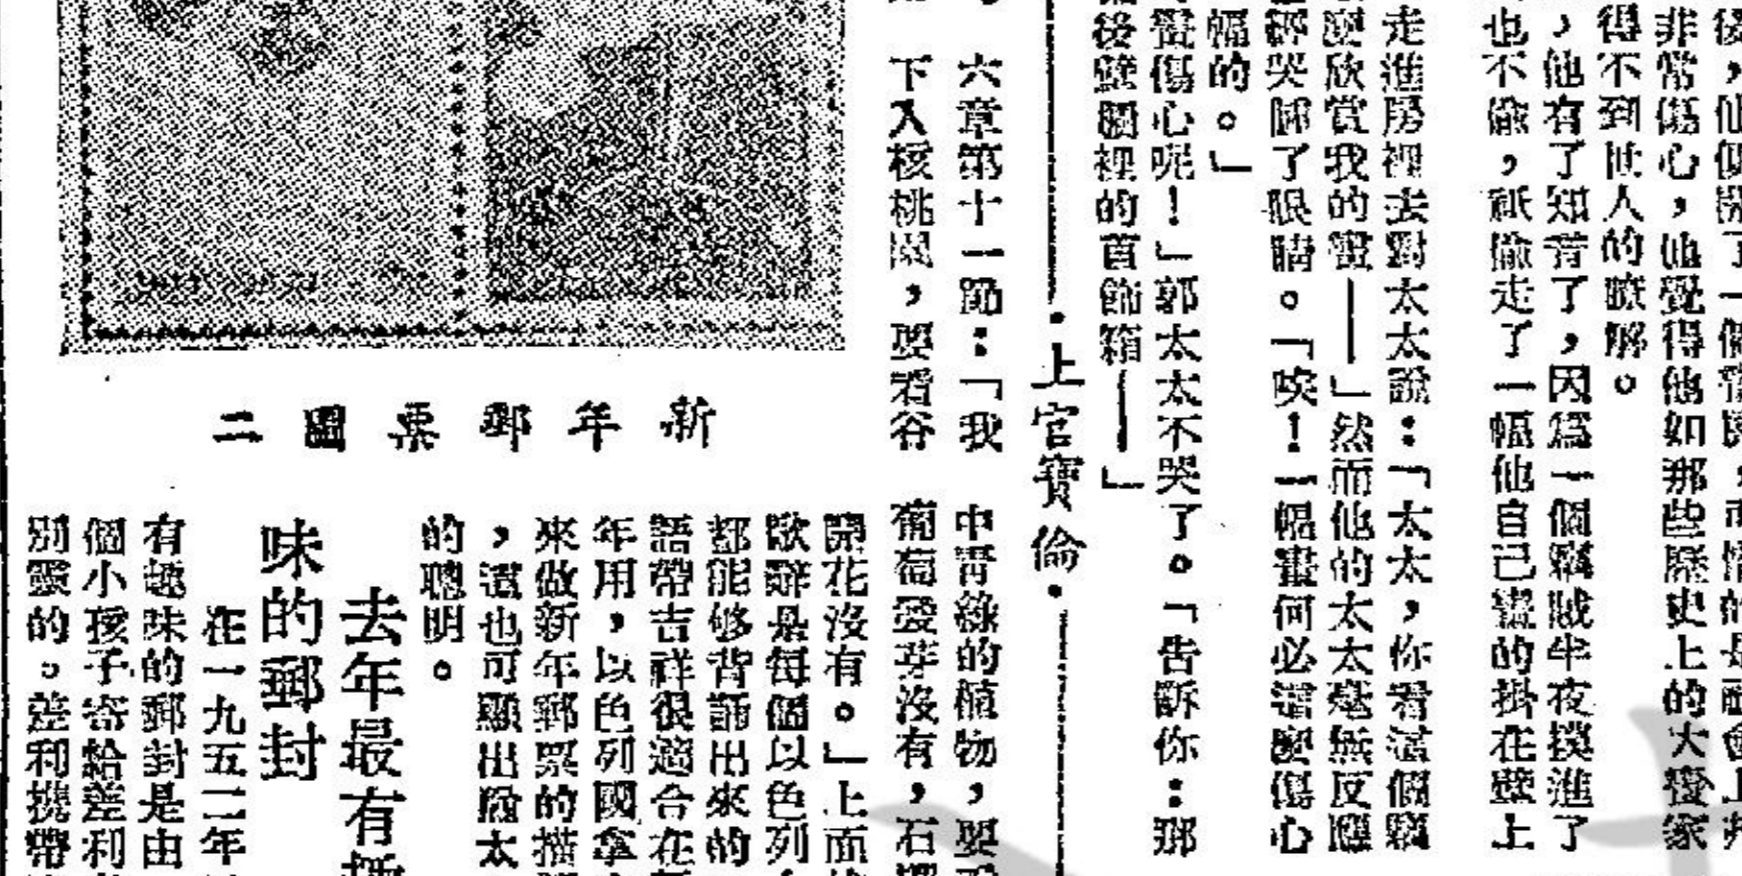 非常傷心，他覺得他如那些歷史上的大畫家
得不到世人的瞭解。
，他有了知音了，因爲一個竊賊半夜摸進了
也不偷，祇偷走了一幅他自己畫的掛在壁上
走進房裡去對太太說：「太太，你看這個竊
欣賞我的畫——」然而他的太太毫無反應
哭腫了眼睛。「唉！一幅畫何必這麼傷心
幅的。」
傷心呢！」郭太太不哭了。「告訴你：那
後壁櫃裡的首飾箱——」
·上官寶倫·
六章第十一節：「我
下入核桃園，要看谷
中青綠的植物，要
葡萄發芽沒有，石
開花沒有。」上面
歌辭是每個以色列
都能够背誦出來的
語帶吉祥很適合在
年用，以色列國拿
來做新年郵票的描
，這也可顯出猶太
的聰明。
新年郵票圖二
去年最有
味的郵封
在一九五二年
有趣味的郵封是由
個小孩子寄給差利
別靈的。差利攜帶